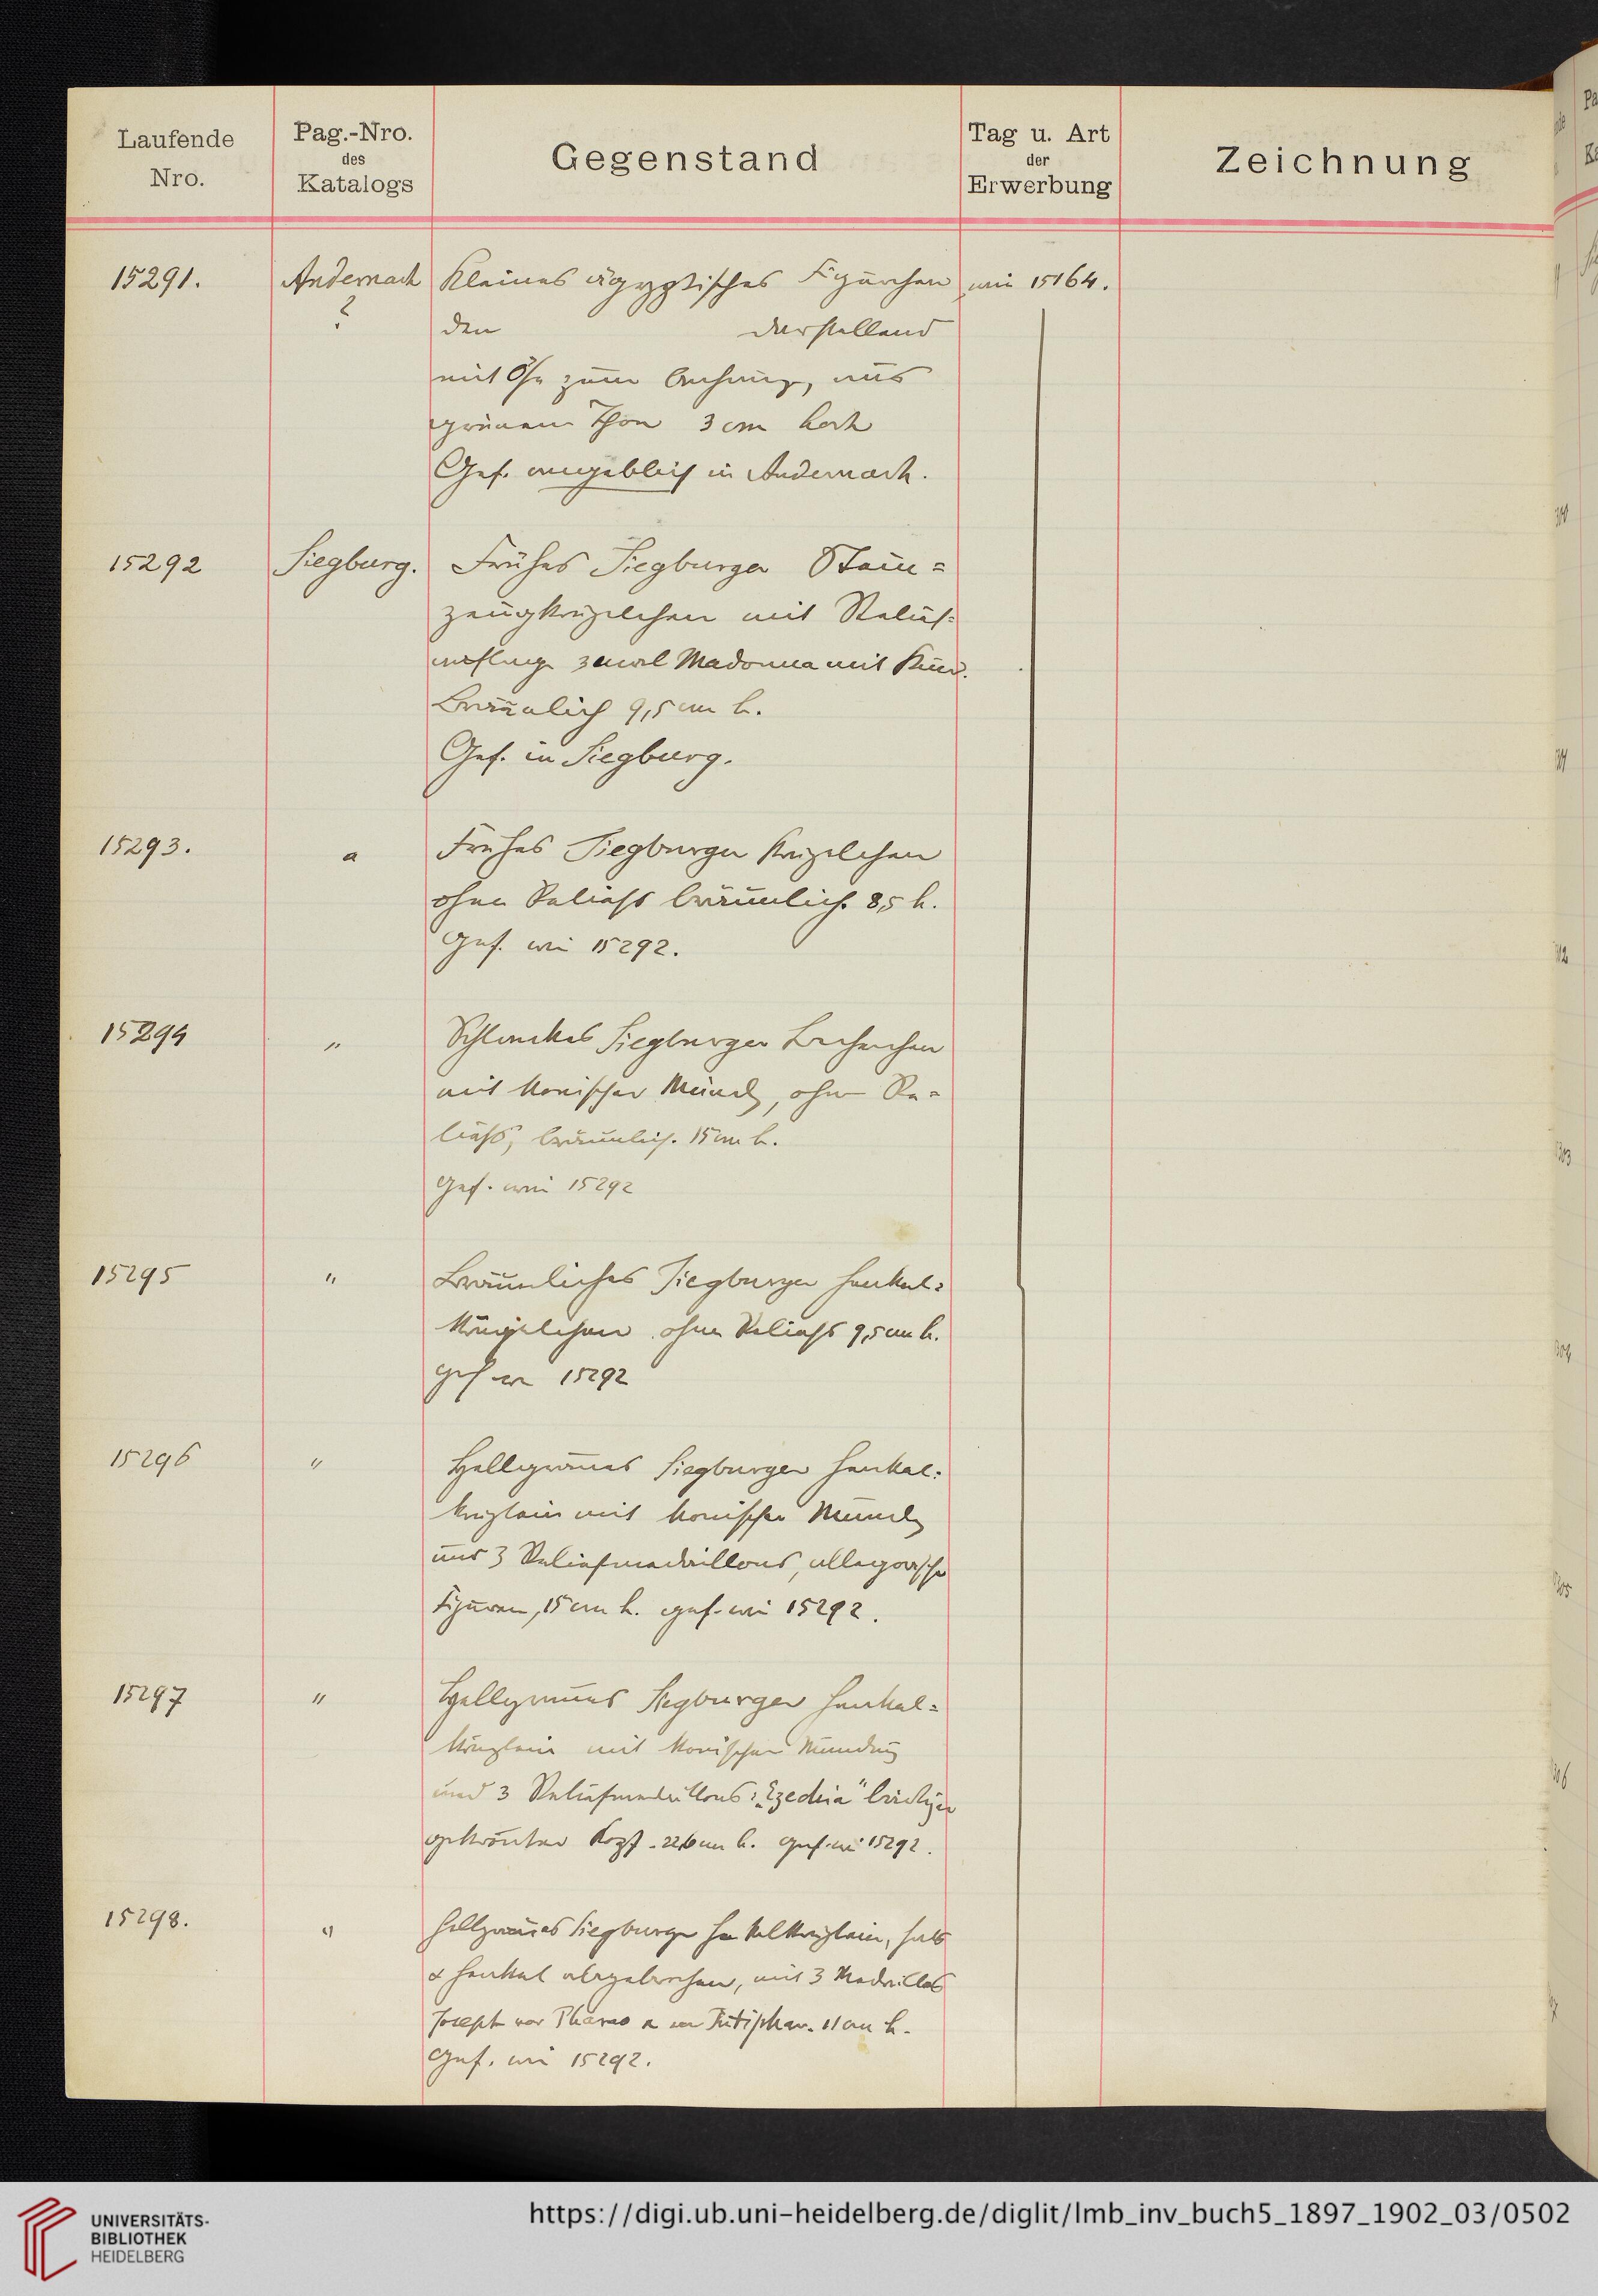 Laufende Nro.
Pag.-Nro. des Katalogs
Gegenstand
Tag u. Art der Erwerbung
Zeichnung
15291. Andernach Kleines ägyptisches Figürchen wie 15164.
? den darstellend
mit Öse zum Anhang, aus
grünem Thon 3 cm hoch
Gef. angeblich in Andernach.
15292 Siegburg. Frühes Siegburger Stein=
zeugkrügelchen mit Relief-
auflage 3 mal Madonna mit Kind.
Bräunlich 9,5 cm h.
Gef. in Siegburg.
15293. " Frühes Siegburger Krügelchen
ohne Reliefs bräunlich. 8,5 h.
Gef. wie 15292.
15294 " Schlankes Siegburger Becherchen
mit konischer Mündg, ohne Re=
liefs, bräunlich. 15 cm h.
Gef. wie 15292
15295 " Bräunliches Siegburger Henkel=
krügelchen ohne Reliefs 9,5 cm h.
gef wie 15292
15296 " Hellgraues Siegburger Henkel=
kruglein mit konischer Mündg
und 3 Reliefmedaillons, allegorische
Figuren, 15 cm h. gef. wie 15292.
15297 " Hellgraues Siegburger Henkel=
krüglein mit konischer Mündung
und 3 Reliefmedaillons: "Ezechia" bärtiger
gekrönter Kopf. cm h. Gef. wie 15292.
15298. " Hellgraues Siegburger Henkelkrüglein, Hals
& Henkel abgebrochen, mit 3 Medaillos
Joseph vor Pharao 11 cm h.
Gef. wie 15292.
UNIVERSITÄTS-
BIBLIOTHEK
HEIDELBERG
https://digi.ub.uni-heidelberg.de/diglit/lmb_inv_buch5_1897_1902_03/0502